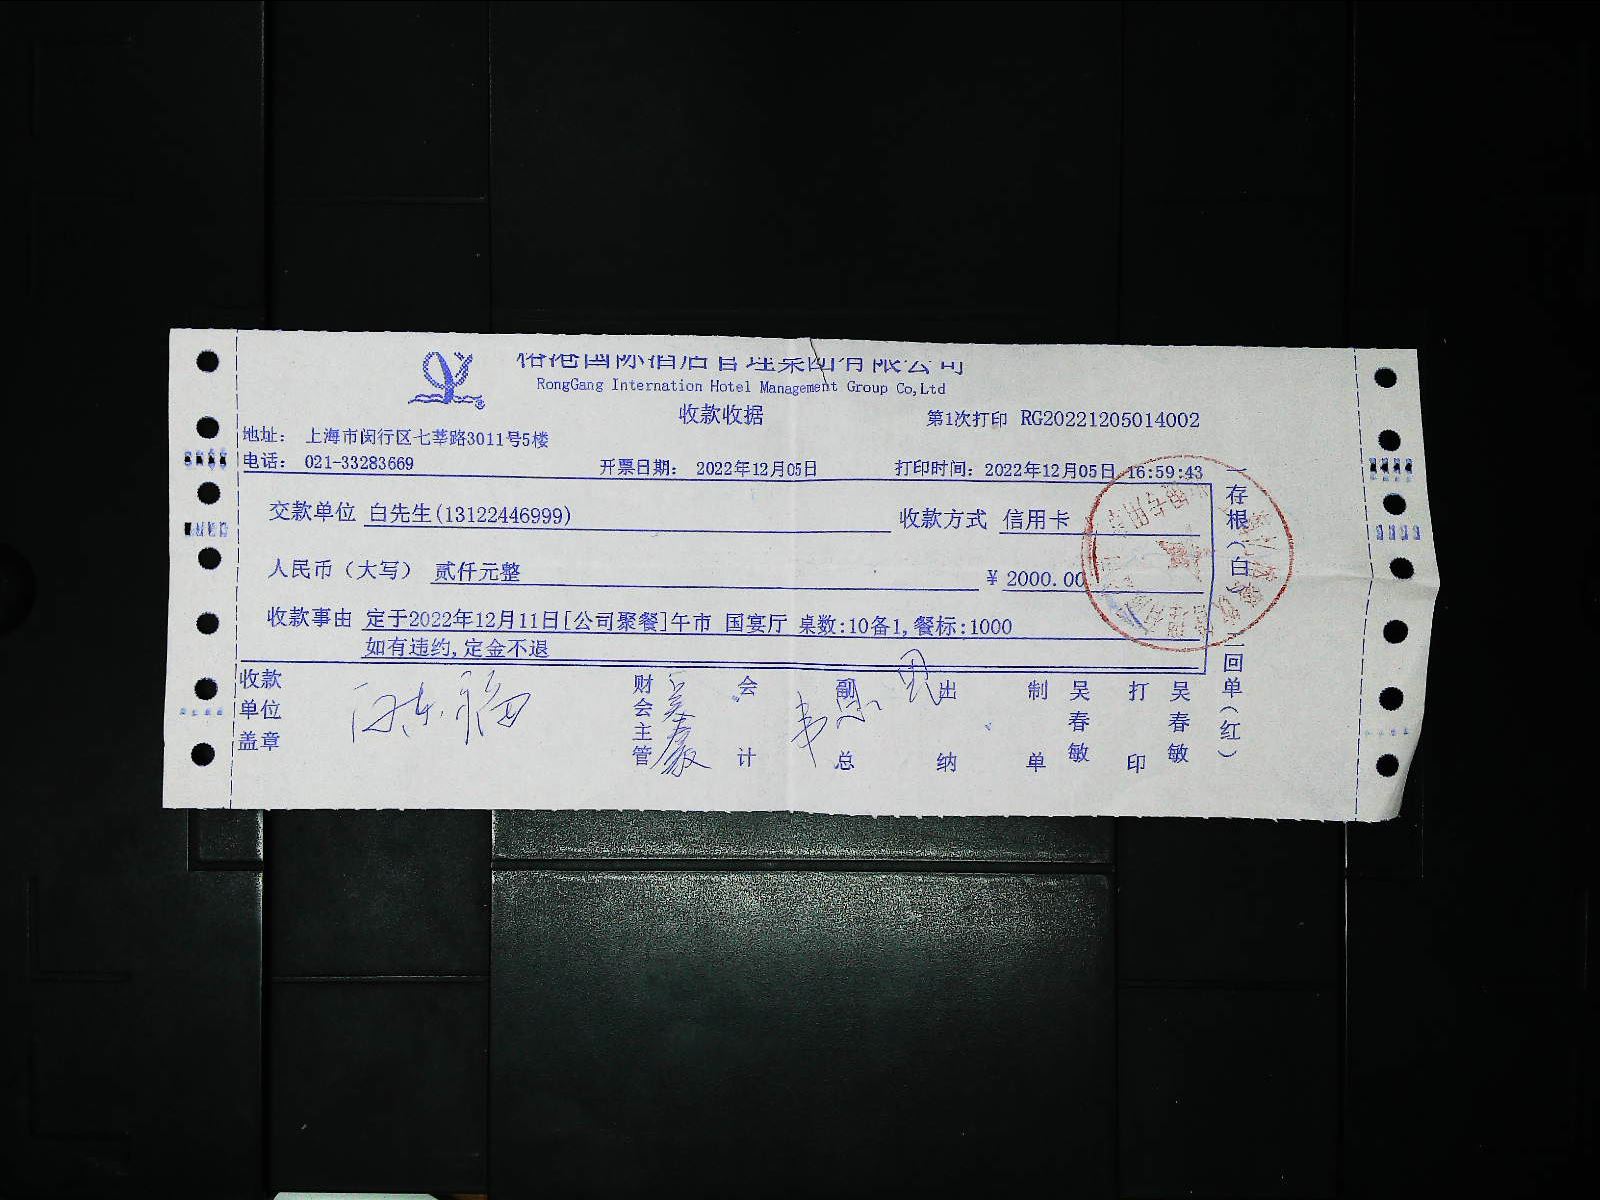 榕港国际酒店管理集团有限公司
RongGang Internation Hotel Management Group Co,Ltd
收款收据
第1次打印 RG20221205014002
地址： 上海市闵行区七莘路3011号5楼
电话： 021-33283669 开票日期： 2022年12月05日 打印时间：2022年12月05日 16:59:43
交款单位 白先生(13122446999) 收款方式 信用卡
人民币（大写） 贰仟元整 ￥2000.00
收款事由 定于2022年12月11日[公司聚餐]午市 国宴厅 桌数:10备1,餐标:1000
如有违约,定金不退
收款单位盖章 财会主管 会计 副总 出纳 制单 吴春敏 打印 吴春敏
一存根（白） 二回单（红）